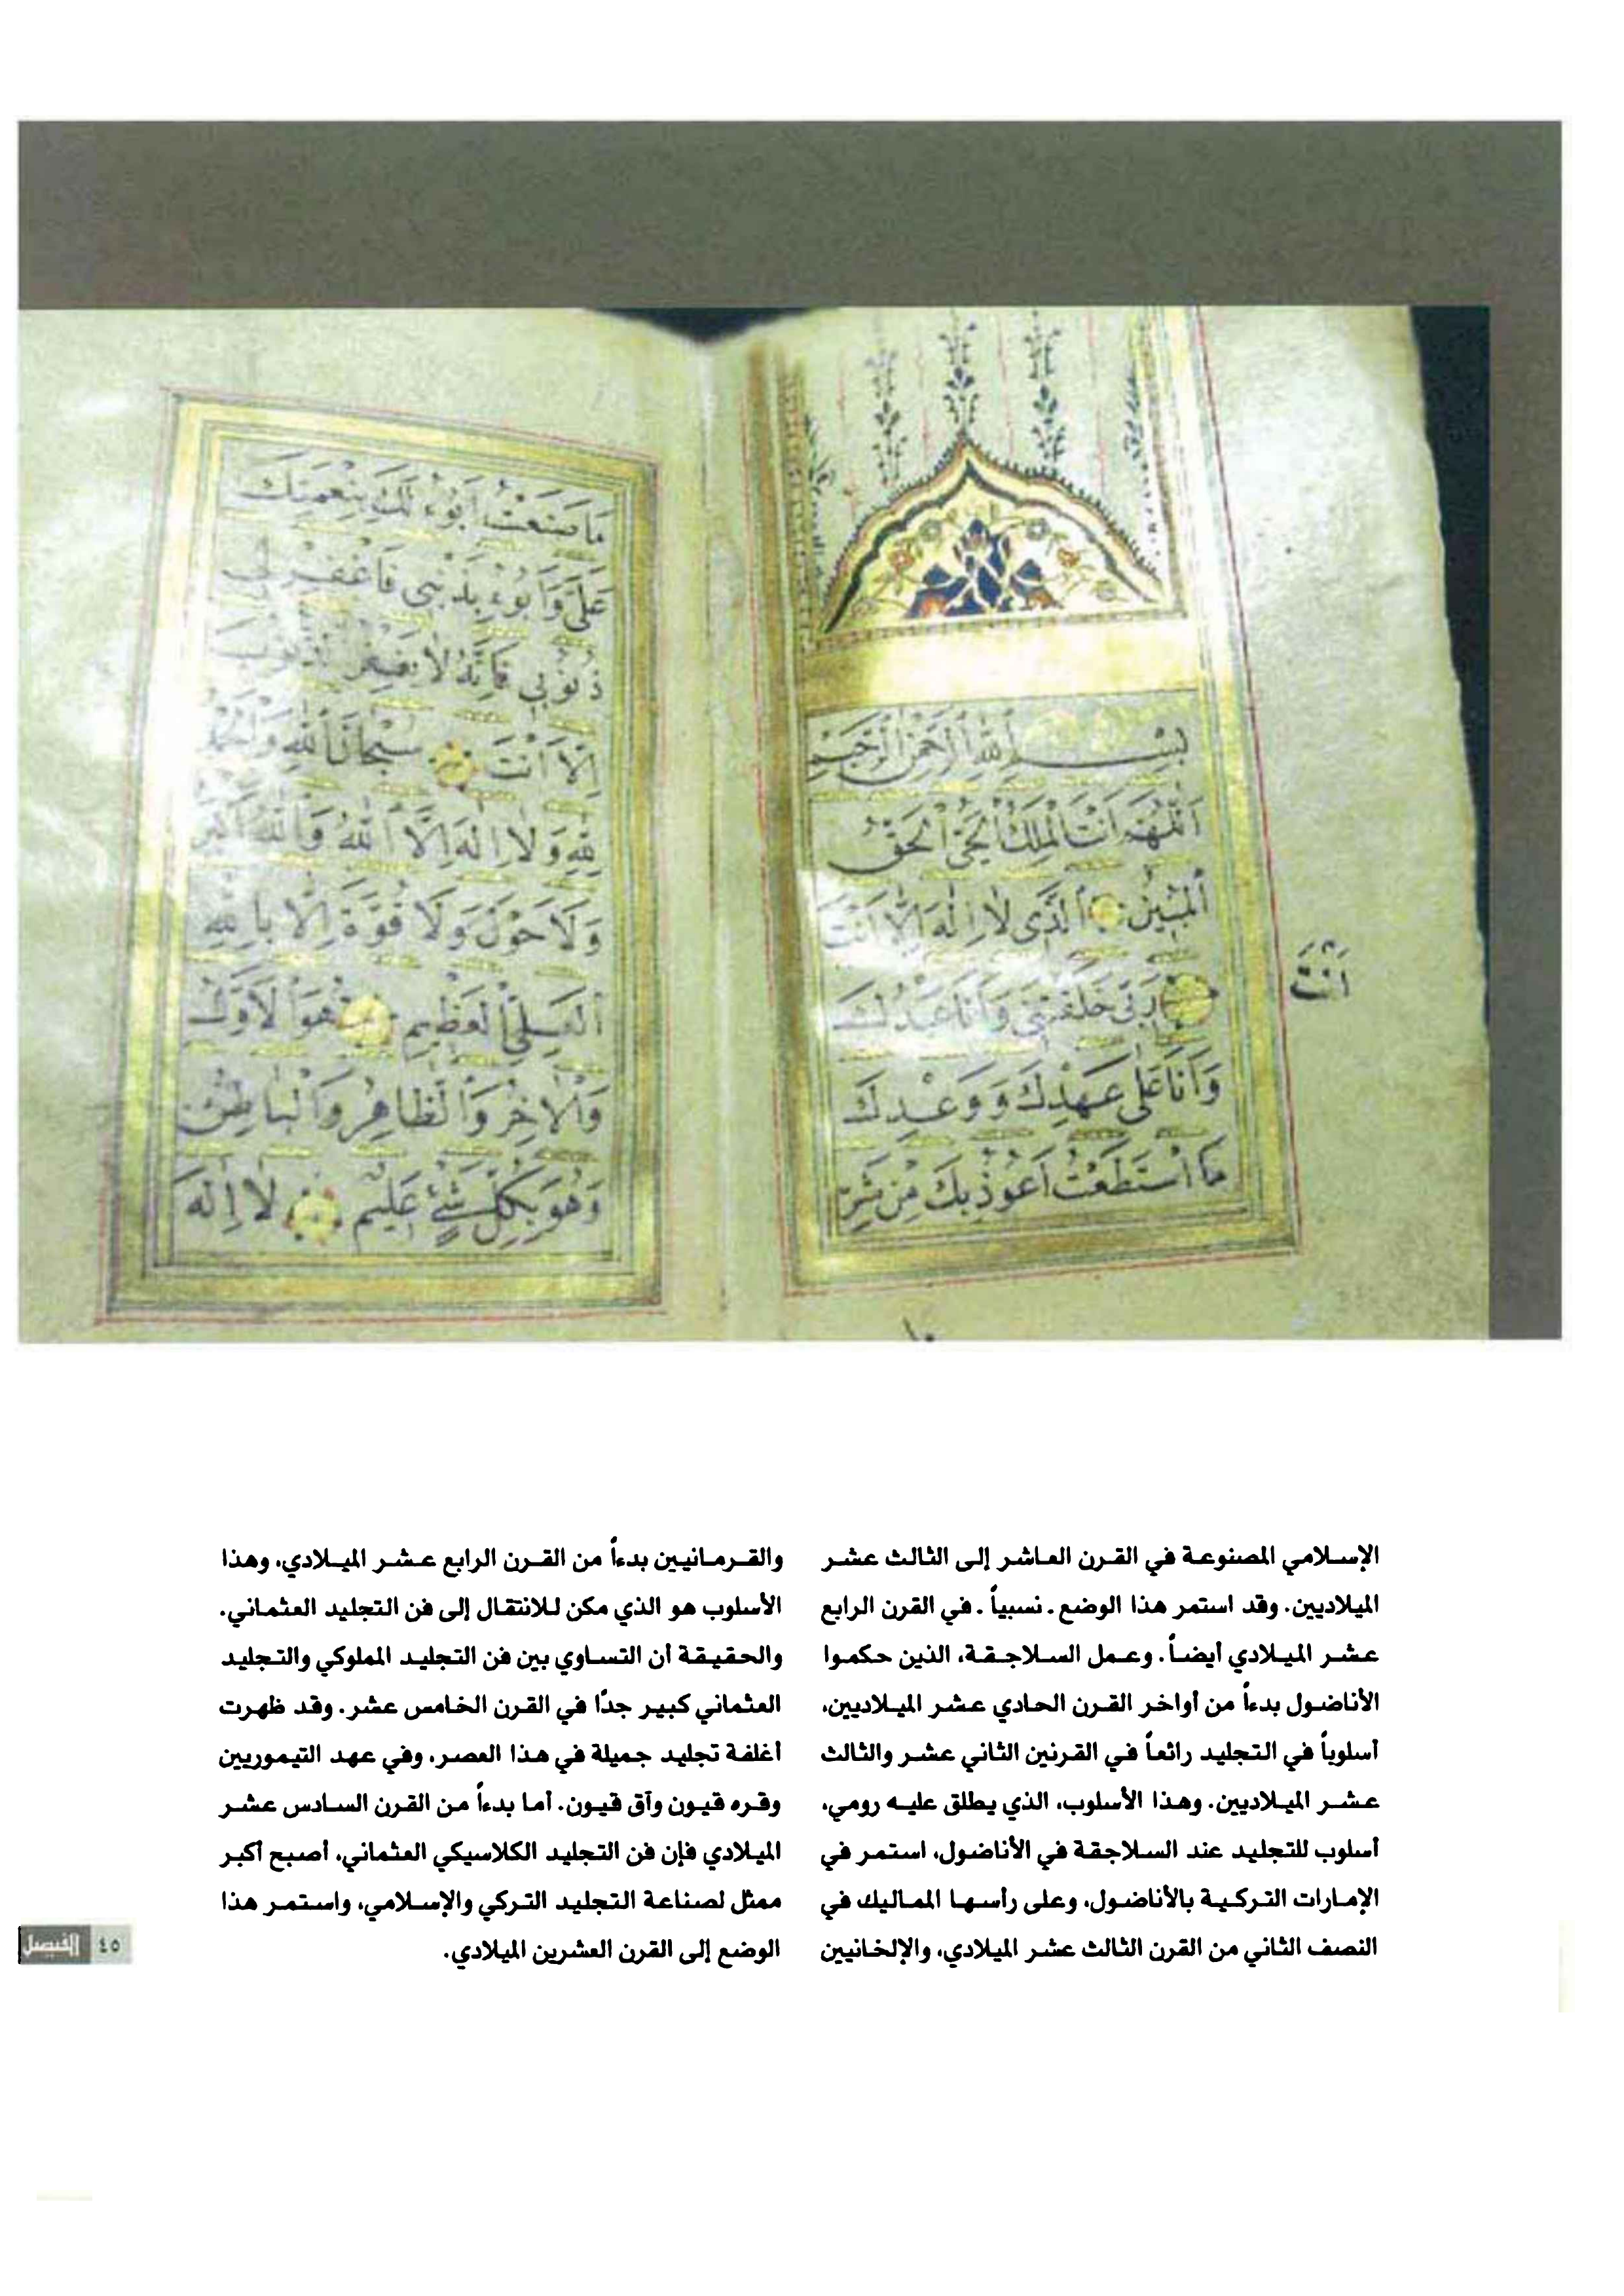 بِسْــمِ اللهِ الرَّحْمٰنِ الرَّحِيمِ
اَللّٰهُمَّ اَنْتَ الْمَلِكُ الْحَيُّ الْحَقُّ
الْمُبِينُ الَّذِى لَا اِلٰهَ اِلَّا اَنْتَ
رَبِّى خَلَقْتَنِى وَاَنَا عَبْدُكَ
اَنْتَ
وَاَنَا عَلٰى عَهْدِكَ وَوَعْدِكَ
مَا اسْتَطَعْتُ اَعُوذُ بِكَ مِنْ شَرِّ
١٠
مَا صَنَعْتُ اَبُوءُ لَكَ بِنِعْمَتِكَ
عَلَىَّ وَاَبُوءُ بِذَنْبِى فَاغْفِرْ لِى
ذُنُوبِى فَاِنَّهُ لَا يَغْفِرُ الذُّنُوبَ
اِلَّا اَنْتَ سُبْحَانَ اللهِ وَالْحَمْدُ
لِلّٰهِ وَلَا اِلٰهَ اِلَّا اللهُ وَاللهُ اَكْبَرُ
وَلَا حَوْلَ وَلَا قُوَّةَ اِلَّا بِاللهِ
الْعَلِىِّ الْعَظِيمِ هُوَ الْاَوَّلُ
وَالْاٰخِرُ وَالظَّاهِرُ وَالْبَاطِنُ
وَهُوَ بِكُلِّ شَىْءٍ عَلِيمٌ لَا اِلٰهَ
الإسلامي المصنوعة في القرن العاشر إلى الثالث عشر
الميلاديين. وقد استمر هذا الوضع. نسبياً. في القرن الرابع
عشر الميلادي أيضاً. وعمل السلاجقة، الذين حكموا
الأناضول بدءاً من أواخر القرن الحادي عشر الميلاديين،
أسلوباً في التجليد رائعاً في القرنين الثاني عشر والثالث
عشر الميلاديين. وهذا الأسلوب، الذي يطلق عليه رومي،
أسلوب للتجليد عند السلاجقة في الأناضول، استمر في
الإمارات التركية بالأناضول، وعلى رأسها المماليك في
النصف الثاني من القرن الثالث عشر الميلادي، والإلخانيين
والقرمانيين بدءاً من القرن الرابع عشر الميلادي، وهذا
الأسلوب هو الذي مكن للانتقال إلى فن التجليد العثماني.
والحقيقة أن التساوي بين فن التجليد المملوكي والتجليد
العثماني كبير جدًا في القرن الخامس عشر. وقد ظهرت
أغلفة تجليد جميلة في هذا العصر، وفي عهد التيموريين
وقره قيون وآق قيون. أما بدءاً من القرن السادس عشر
الميلادي فإن فن التجليد الكلاسيكي العثماني، أصبح أكبر
ممثل لصناعة التجليد التركي والإسلامي، واستمر هذا
الوضع إلى القرن العشرين الميلادي.
٤٥ الفيصل